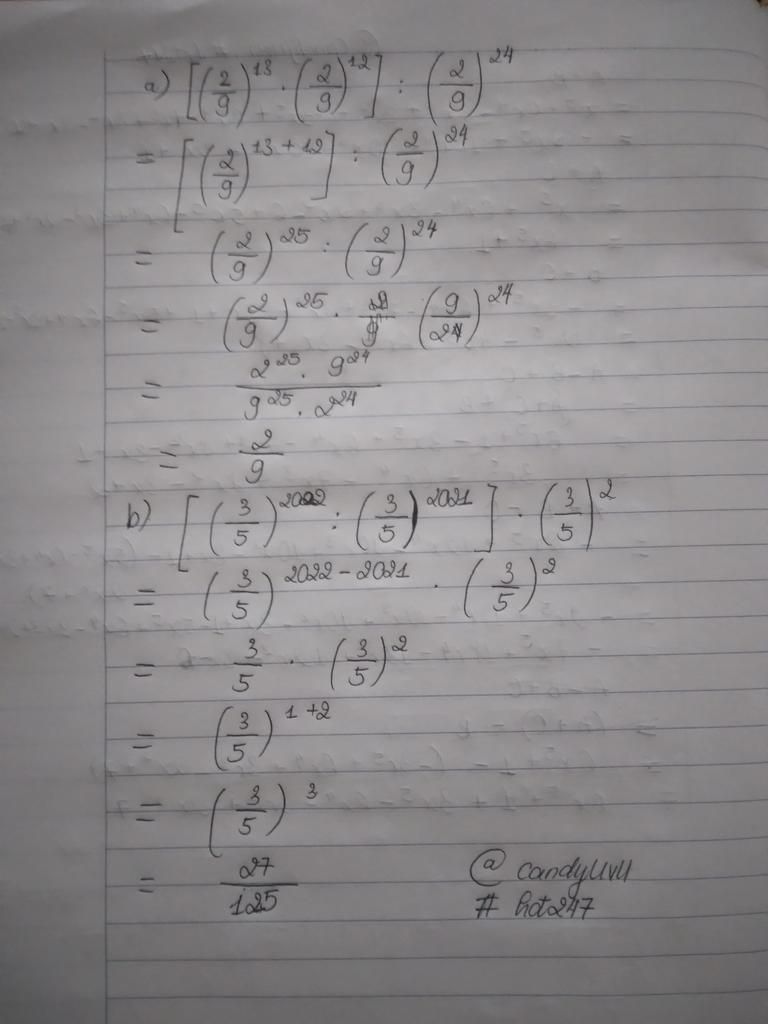 a) [(2/9)^13 · (2/9)^12] : (2/9)^24
= [(2/9)^13 + 12] : (2/9)^24
= (2/9)^25 : (2/9)^24
= (2/9)^25 · (9/2)^24
= 2^25 · 9^24 / 9^25 · 2^24
= 2/9
b) [(3/5)^2022 : (3/5)^2021] · (3/5)^2
= (3/5)^2022 - 2021 · (3/5)^2
= 3/5 · (3/5)^2
= (3/5)^1 + 2
= (3/5)^3
= 27/125
@ candyUvU
# hdt247